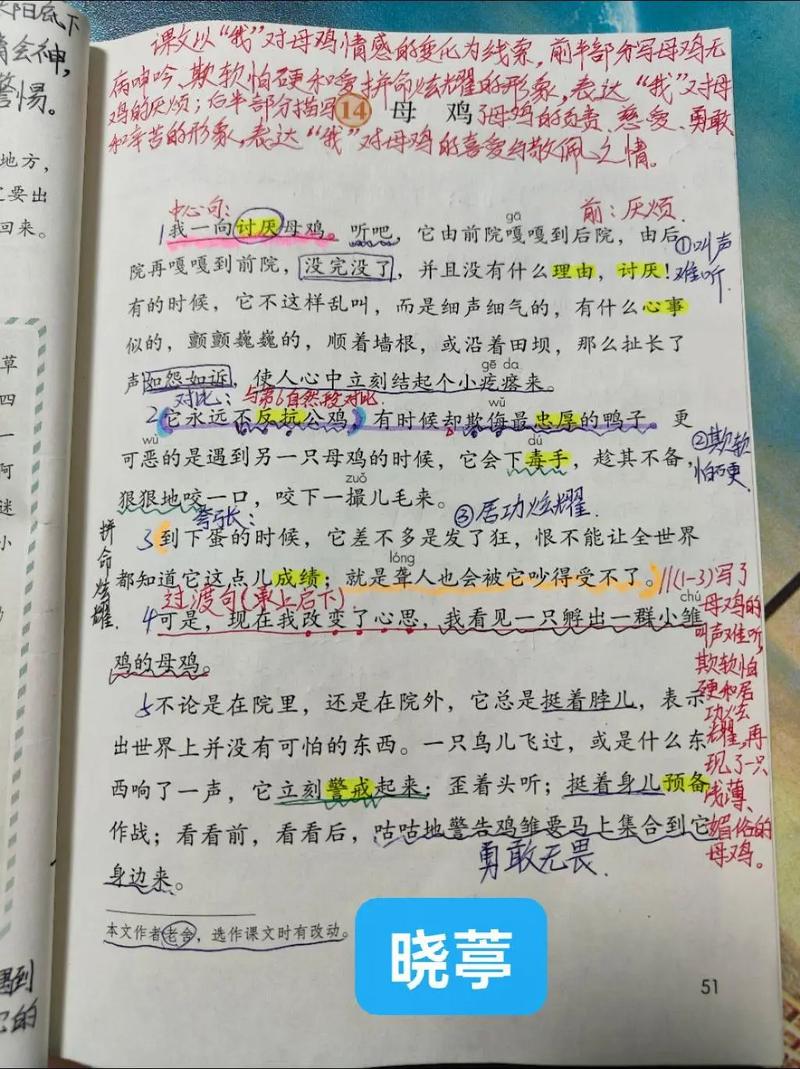 课文以“我”对母鸡情感的变化为线索，前半部分写母鸡无
病呻吟、欺软怕硬和爱拼命炫耀的形象，表达“我”对母
鸡的厌烦；后半部分描写了母鸡的负责、慈爱、勇敢
14 母鸡
和辛苦的形象，表达“我”对母鸡的喜爱与敬佩之情。
中心句：
前：厌烦.
gā
1我一向讨厌母鸡。听吧，它由前院嘎嘎到后院，由后
①叫声
难听
院再嘎嘎到前院，没完没了，并且没有什么理由，讨厌！
有的时候，它不这样乱叫，而是细声细气的，有什么心事
似的，颤颤巍巍的，顺着墙根，或沿着田坝，那么扯长了
gē da
声如怨如诉，使人心中立刻结起个小疙瘩来。
对比：与第6自然段对比.
wǔ
2它永远不反抗公鸡。有时候却欺侮最忠厚的鸭子。更
②欺软
怕硬
wù
dú
可恶的是遇到另一只母鸡的时候，它会下毒手，趁其不备，
zuǒ
狠狠地咬一口，咬下一撮儿毛来。
夸张：
③居功炫耀.
3到下蛋的时候，它差不多是发了狂，恨不能让全世界
拼命炫耀.
lóng
都知道它这点儿成绩；就是聋人也会被它吵得受不了。
过渡句(承上启下)
chú
4可是，现在我改变了心思，我看见一只孵出一群小雏
鸡的母鸡。
(1-3)写了
母鸡的
叫声难听，
欺软怕
硬和居
功炫
耀，再
现了一只
浅薄、
媚俗的
母鸡。
5不论是在院里，还是在院外，它总是挺着脖儿，表示
出世界上并没有可怕的东西。一只鸟儿飞过，或是什么东
西响了一声，它立刻警戒起来：歪着头听；挺着身儿预备
作战；看看前，看看后，咕咕地警告鸡雏要马上集合到它
身边来。
勇敢无畏.
本文作者老舍，选作课文时有改动。
晓葶
51
下
会神，
警惕。
地方，
要出
回来。
草
四
一
阿
迷
小
遇到
的